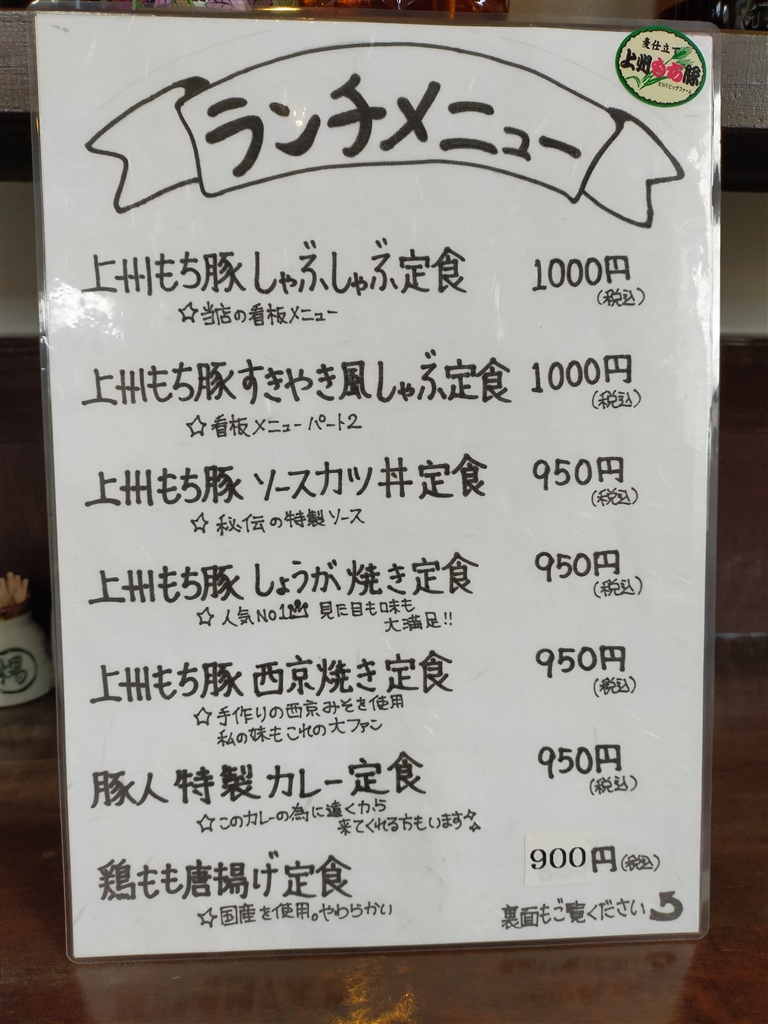 麦仕立て
上州もち豚
ランチメニュー
上州もち豚しゃぶしゃぶ定食 1000円
(税込)
☆当店の看板メニュー
上州もち豚すきやき風しゃぶ定食 1000円
(税込)
☆看板メニューパート2
上州もち豚 ソースカツ丼定食 950円
(税込)
☆秘伝の特製ソース
上州もち豚 しょうが焼き定食 950円
(税込)
☆人気No1 見た目も味も
大満足!!
上州もち豚 西京焼き定食 950円
(税込)
☆手作りの西京みそを使用
私の妹もこれの大ファン
豚人特製カレー定食 950円
(税込)
☆このカレーの為に遠くから
来てくれる方もいます
鶏もも唐揚げ定食 900円(税込)
☆国産を使用。やわらかい
裏面もご覧ください